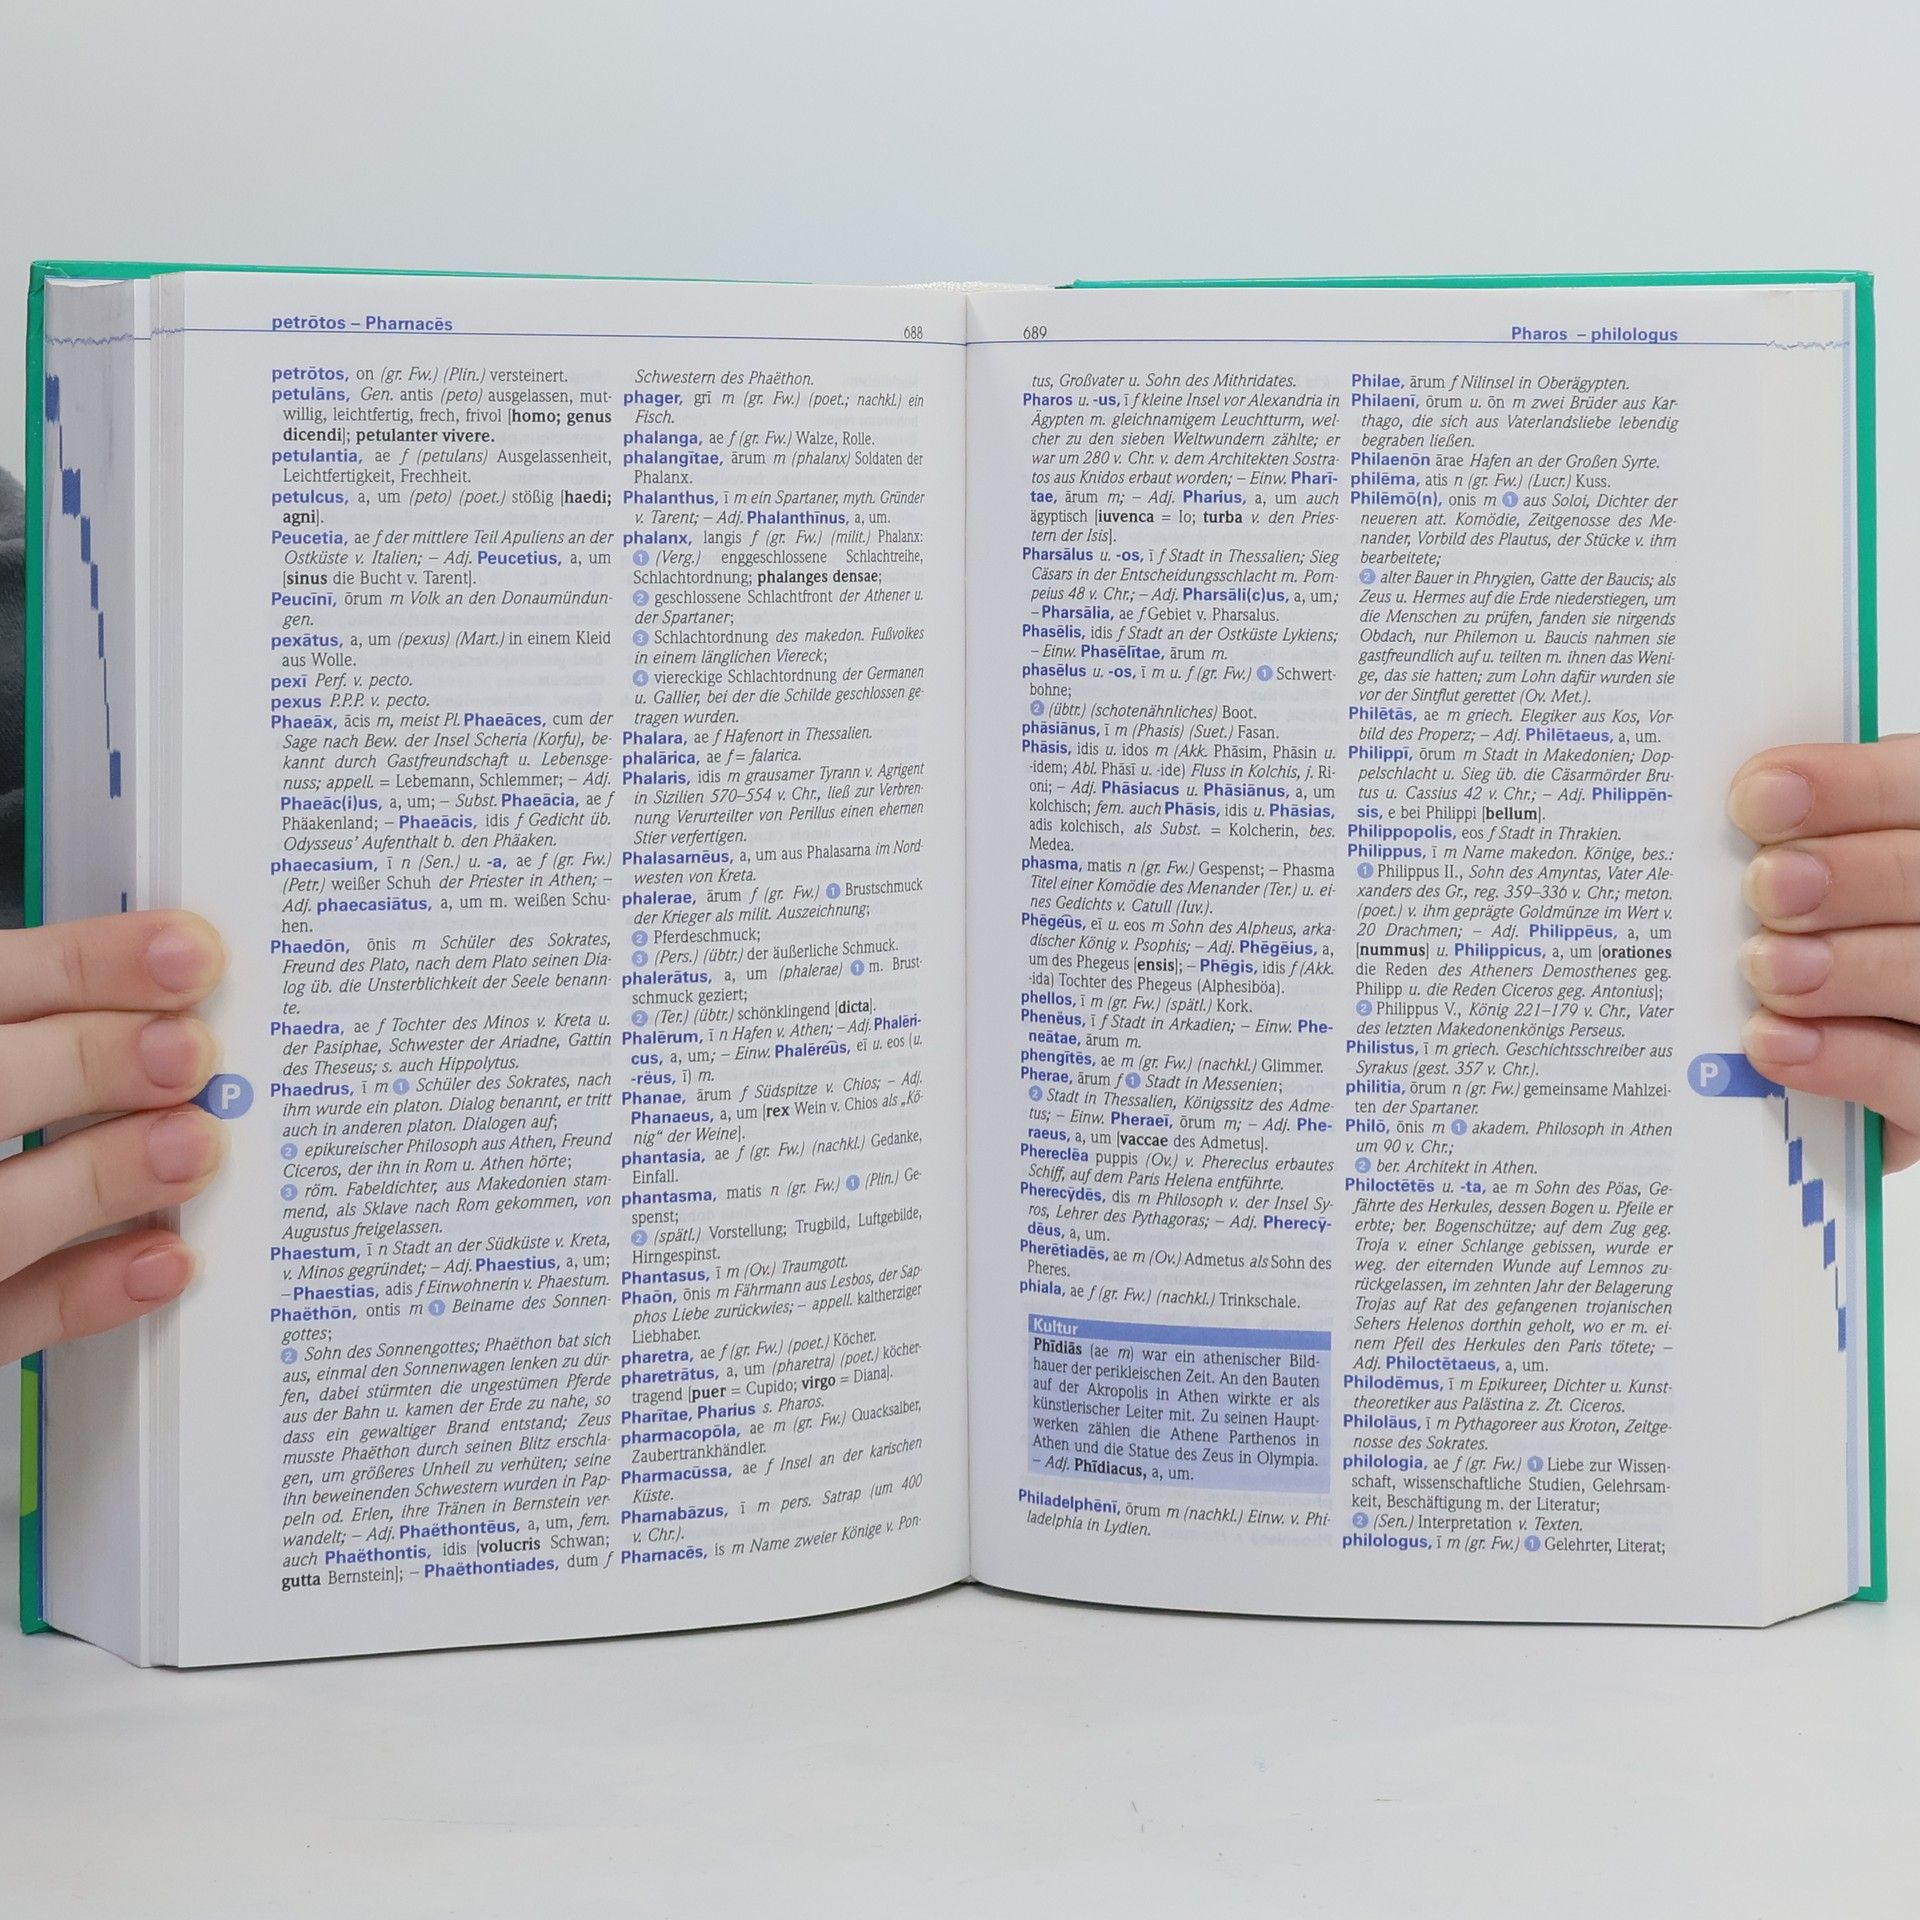 petrōtos – Pharnacēs
688
petrōtos, on (gr. Fw.) (Plin.) versteinert.
petulāns, Gen. antis (peto) ausgelassen, mut-
willig, leichtfertig, frech, frivol [homo; genus
dicendi]; petulanter vivere.
petulantia, ae f (petulans) Ausgelassenheit,
Leichtfertigkeit, Frechheit.
petulcus, a, um (peto) (poet.) stößig [haedi;
agni].
Peucetia, ae f der mittlere Teil Apuliens an der
Ostküste v. Italien; – Adj. Peucetius, a, um
[sinus die Bucht v. Tarent].
Peucīnī, ōrum m Volk an den Donaumündun-
gen.
pexātus, a, um (pexus) (Mart.) in einem Kleid
aus Wolle.
pexī Perf. v. pecto.
pexus P.P.P. v. pecto.
Phaeāx, ācis m, meist Pl. Phaeāces, cum der
Sage nach Bew. der Insel Scheria (Korfu), be-
kannt durch Gastfreundschaft u. Lebensge-
nuss; appell. = Lebemann, Schlemmer; – Adj.
Phaeāc(i)us, a, um; – Subst. Phaeācia, ae f
Phäakenland; – Phaeācis, idis f Gedicht üb.
Odysseus' Aufenthalt b. den Phäaken.
phaecasium, ī n (Sen.) u. -a, ae f (gr. Fw.)
(Petr.) weißer Schuh der Priester in Athen; –
Adj. phaecasiātus, a, um m. weißen Schu-
hen.
Phaedōn, ōnis m Schüler des Sokrates,
Freund des Plato, nach dem Plato seinen Dia-
log üb. die Unsterblichkeit der Seele benann-
te.
Phaedra, ae f Tochter des Minos v. Kreta u.
der Pasiphae, Schwester der Ariadne, Gattin
des Theseus; s. auch Hippolytus.
Phaedrus, ī m 1 Schüler des Sokrates, nach
ihm wurde ein platon. Dialog benannt, er tritt
auch in anderen platon. Dialogen auf;
2 epikureischer Philosoph aus Athen, Freund
Ciceros, der ihn in Rom u. Athen hörte;
3 röm. Fabeldichter, aus Makedonien stam-
mend, als Sklave nach Rom gekommen, von
Augustus freigelassen.
Phaestum, ī n Stadt an der Südküste v. Kreta,
v. Minos gegründet; – Adj. Phaestius, a, um;
– Phaestias, adis f Einwohnerin v. Phaestum.
Phaëthōn, ontis m 1 Beiname des Sonnen-
gottes;
2 Sohn des Sonnengottes; Phaëthon bat sich
aus, einmal den Sonnenwagen lenken zu dür-
fen, dabei stürmten die ungestümen Pferde
aus der Bahn u. kamen der Erde zu nahe, so
dass ein gewaltiger Brand entstand; Zeus
musste Phaëthon durch seinen Blitz erschla-
gen, um größeres Unheil zu verhüten; seine
ihn beweinenden Schwestern wurden in Pap-
peln od. Erlen, ihre Tränen in Bernstein ver-
wandelt; – Adj. Phaëthontēus, a, um, fem.
auch Phaëthontis, idis [volucris Schwan;
gutta Bernstein]; – Phaëthontiades, dum f
Schwestern des Phaëthon.
phager, grī m (gr. Fw.) (poet.; nachkl.) ein
Fisch.
phalanga, ae f (gr. Fw.) Walze, Rolle.
phalangītae, ārum m (phalanx) Soldaten der
Phalanx.
Phalanthus, ī m ein Spartaner, myth. Gründer
v. Tarent; – Adj. Phalanthīnus, a, um.
phalanx, langis f (gr. Fw.) (milit.) Phalanx:
1 (Verg.) enggeschlossene Schlachtreihe,
Schlachtordnung; phalanges densae;
2 geschlossene Schlachtfront der Athener u.
der Spartaner;
3 Schlachtordnung des makedon. Fußvolkes
in einem länglichen Viereck;
4 viereckige Schlachtordnung der Germanen
u. Gallier, bei der die Schilde geschlossen ge-
tragen wurden.
Phalara, ae f Hafenort in Thessalien.
phalārica, ae f = falarica.
Phalaris, idis m grausamer Tyrann v. Agrigent
in Sizilien 570–554 v. Chr., ließ zur Verbren-
nung Verurteilter von Perillus einen ehernen
Stier verfertigen.
Phalasarnēus, a, um aus Phalasarna im Nord-
westen von Kreta.
phalerae, ārum f (gr. Fw.) 1 Brustschmuck
der Krieger als milit. Auszeichnung;
2 Pferdeschmuck;
3 (Pers.) (übtr.) der äußerliche Schmuck.
phalerātus, a, um (phalerae) 1 m. Brust-
schmuck geziert;
2 (Ter.) (übtr.) schönklingend [dicta].
Phalērum, ī n Hafen v. Athen; – Adj. Phalēri-
cus, a, um; – Einw. Phalēreūs, eī u. eos (u.
-rëus, ī) m.
Phanae, ārum f Südspitze v. Chios; – Adj.
Phanaeus, a, um [rex Wein v. Chios als „Kö-
nig“ der Weine].
phantasia, ae f (gr. Fw.) (nachkl.) Gedanke,
Einfall.
phantasma, matis n (gr. Fw.) 1 (Plin.) Ge-
spenst;
2 (spätl.) Vorstellung; Trugbild, Luftgebilde,
Hirngespinst.
Phantasus, ī m (Ov.) Traumgott.
Phaōn, ōnis m Fährmann aus Lesbos, der Sap-
phos Liebe zurückwies; – appell. kaltherziger
Liebhaber.
pharetra, ae f (gr. Fw.) (poet.) Köcher.
pharetrātus, a, um (pharetra) (poet.) köcher-
tragend [puer = Cupido; virgo = Diana].
Pharītae, Pharius s. Pharos.
pharmacopōla, ae m (gr. Fw.) Quacksalber,
Zaubertrankhändler.
Pharmacūssa, ae f Insel an der karischen
Küste.
Pharnabāzus, ī m pers. Satrap (um 400
v. Chr.).
Pharnacēs, is m Name zweier Könige v. Pon-
P
689
Pharos – philologus
tus, Großvater u. Sohn des Mithridates.
Pharos u. -us, ī f kleine Insel vor Alexandria in
Ägypten m. gleichnamigem Leuchtturm, wel-
cher zu den sieben Weltwundern zählte; er
war um 280 v. Chr. v. dem Architekten Sostra-
tos aus Knidos erbaut worden; – Einw. Pharī-
tae, ārum m; – Adj. Pharius, a, um auch
ägyptisch [iuvenca = Io; turba v. den Pries-
tern der Isis].
Pharsālus u. -os, ī f Stadt in Thessalien; Sieg
Cäsars in der Entscheidungsschlacht m. Pom-
peius 48 v. Chr.; – Adj. Pharsāli(c)us, a, um;
– Pharsālia, ae f Gebiet v. Pharsalus.
Phasēlis, idis f Stadt an der Ostküste Lykiens;
– Einw. Phasēlītae, ārum m.
phasēlus u. -os, ī m u. f (gr. Fw.) 1 Schwert-
bohne;
2 (übtr.) (schotenähnliches) Boot.
phāsiānus, ī m (Phasis) (Suet.) Fasan.
Phāsis, idis u. idos m (Akk. Phāsim, Phāsin u.
-idem; Abl. Phāsī u. -ide) Fluss in Kolchis, j. Ri-
oni; – Adj. Phāsiacus u. Phāsiānus, a, um
kolchisch; fem. auch Phāsis, idis u. Phāsias,
adis kolchisch, als Subst. = Kolcherin, bes.
Medea.
phasma, matis n (gr. Fw.) Gespenst; – Phasma
Titel einer Komödie des Menander (Ter.) u. ei-
nes Gedichts v. Catull (Iuv.).
Phēgeūs, eī u. eos m Sohn des Alpheus, arka-
discher König v. Psophis; – Adj. Phēgēius, a,
um des Phegeus [ensis]; – Phēgis, idis f (Akk.
-ida) Tochter des Phegeus (Alphesiböa).
phellos, ī m (gr. Fw.) (spätl.) Kork.
Pheneūs, ī f Stadt in Arkadien; – Einw. Phe-
neātae, ārum m.
phengītēs, ae m (gr. Fw.) (nachkl.) Glimmer.
Pherae, ārum f 1 Stadt in Messenien;
2 Stadt in Thessalien, Königssitz des Adme-
tus; – Einw. Pheraeī, ōrum m; – Adj. Phe-
raeus, a, um [vaccae des Admetus].
Phereclēa puppis (Ov.) v. Phereclus erbautes
Schiff, auf dem Paris Helena entführte.
Pherecȳdēs, dis m Philosoph v. der Insel Sy-
ros, Lehrer des Pythagoras; – Adj. Pherecȳ-
dēus, a, um.
Pherētiadēs, ae m (Ov.) Admetus als Sohn des
Pheres.
phiala, ae f (gr. Fw.) (nachkl.) Trinkschale.
Kultur
Phīdiās (ae m) war ein athenischer Bild-
hauer der perikleischen Zeit. An den Bauten
auf der Akropolis in Athen wirkte er als
künstlerischer Leiter mit. Zu seinen Haupt-
werken zählen die Athene Parthenos in
Athen und die Statue des Zeus in Olympia.
– Adj. Phīdiacus, a, um.
Philadelphēnī, ōrum m (nachkl.) Einw. v. Phi-
ladelphia in Lydien.
Philae, ārum f Nilinsel in Oberägypten.
Philaenī, ōrum u. ōn m zwei Brüder aus Kar-
thago, die sich aus Vaterlandsliebe lebendig
begraben ließen.
Philaenōn ārae Hafen an der Großen Syrte.
philēma, atis n (gr. Fw.) (Lucr.) Kuss.
Philēmō(n), onis m 1 aus Soloi, Dichter der
neueren att. Komödie, Zeitgenosse des Me-
nander, Vorbild des Plautus, der Stücke v. ihm
bearbeitete;
2 alter Bauer in Phrygien, Gatte der Baucis; als
Zeus u. Hermes auf die Erde niederstiegen, um
die Menschen zu prüfen, fanden sie nirgends
Obdach, nur Philemon u. Baucis nahmen sie
gastfreundlich auf u. teilten m. ihnen das Weni-
ge, das sie hatten; zum Lohn dafür wurden sie
vor der Sintflut gerettet (Ov. Met.).
Philētās, ae m griech. Elegiker aus Kos, Vor-
bild des Properz; – Adj. Philētaeus, a, um.
Philippī, ōrum m Stadt in Makedonien; Dop-
pelschlacht u. Sieg üb. die Cäsarmörder Bru-
tus u. Cassius 42 v. Chr.; – Adj. Philippēn-
sis, e bei Philippi [bellum].
Philippopolis, eos f Stadt in Thrakien.
Philippus, ī m Name makedon. Könige, bes.:
1 Philippus II., Sohn des Amyntas, Vater Ale-
xanders des Gr., reg. 359–336 v. Chr.; meton.
(poet.) v. ihm geprägte Goldmünze im Wert v.
20 Drachmen; – Adj. Philippēus, a, um
[nummus] u. Philippicus, a, um [orationes
die Reden des Atheners Demosthenes geg.
Philipp u. die Reden Ciceros geg. Antonius];
2 Philippus V., König 221–179 v. Chr., Vater
des letzten Makedonenkönigs Perseus.
Philistus, ī m griech. Geschichtsschreiber aus
Syrakus (gest. 357 v. Chr.).
philitia, ōrum n (gr. Fw.) gemeinsame Mahlzei-
ten der Spartaner.
Philō, ōnis m 1 akadem. Philosoph in Athen
um 90 v. Chr.;
2 ber. Architekt in Athen.
Philoctētēs u. -ta, ae m Sohn des Pöas, Ge-
fährte des Herkules, dessen Bogen u. Pfeile er
erbte; ber. Bogenschütze; auf dem Zug geg.
Troja v. einer Schlange gebissen, wurde er
weg. der eiternden Wunde auf Lemnos zu-
rückgelassen, im zehnten Jahr der Belagerung
Trojas auf Rat des gefangenen trojanischen
Sehers Helenos dorthin geholt, wo er m. ei-
nem Pfeil des Herkules den Paris tötete; –
Adj. Philoctētaeus, a, um.
Philodēmus, ī m Epikureer, Dichter u. Kunst-
theoretiker aus Palästina z. Zt. Ciceros.
Philolāus, ī m Pythagoreer aus Kroton, Zeitge-
nosse des Sokrates.
philologia, ae f (gr. Fw.) 1 Liebe zur Wissen-
schaft, wissenschaftliche Studien, Gelehrsam-
keit, Beschäftigung m. der Literatur;
2 (Sen.) Interpretation v. Texten.
philologus, ī m (gr. Fw.) 1 Gelehrter, Literat;
P